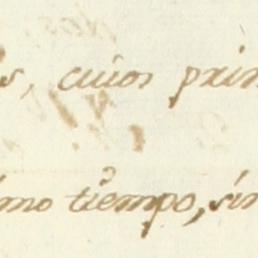 s, cuios prin
imo tiempo, sin